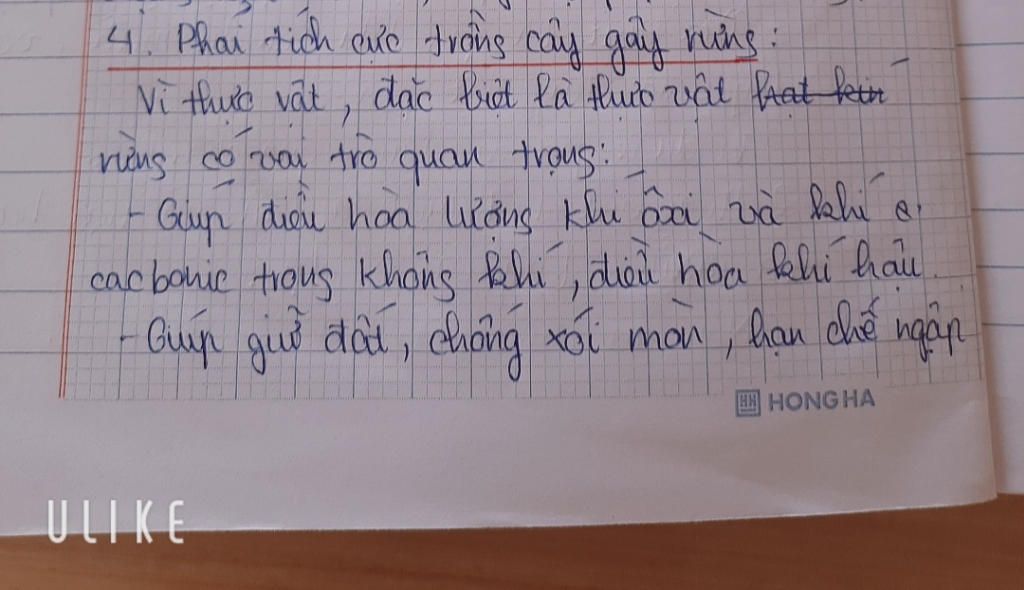 4. Phải tích cực trồng cây gây rừng:
Vì thực vật, đặc biệt là thực vật
rừng có vai trò quan trọng:
- Giúp điều hòa lượng khí ôxi và khí
cacbonic trong không khí, điều hòa khí hậu.
- Giúp giữ đất, chống xói mòn, hạn chế ngập
HONG HA
ULIKE